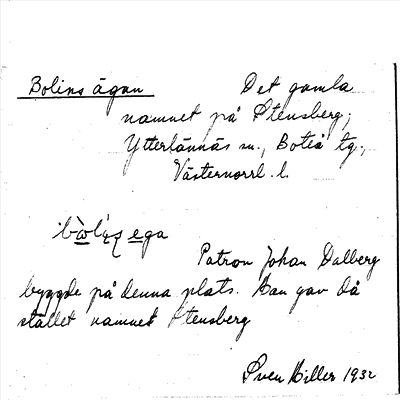 Bolins ägan Det gamla
namnet på Stensberg,
Ytterlännäs sn., Boteå tg.,
Västernorrl. l.
Patron Johan Dalberg
byggde på denna plats. Han gav då
stället namnet Stensberg
Sven Hiller 1932